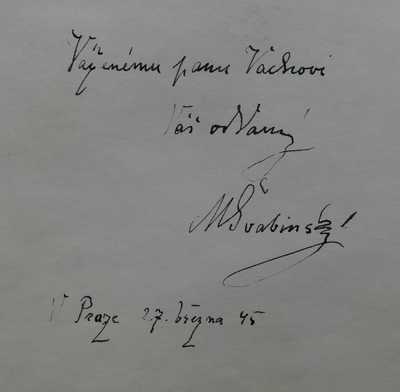 Váženému panu Váchovi
Váš oddaný
MŠvabinský
V Praze 27. března 45